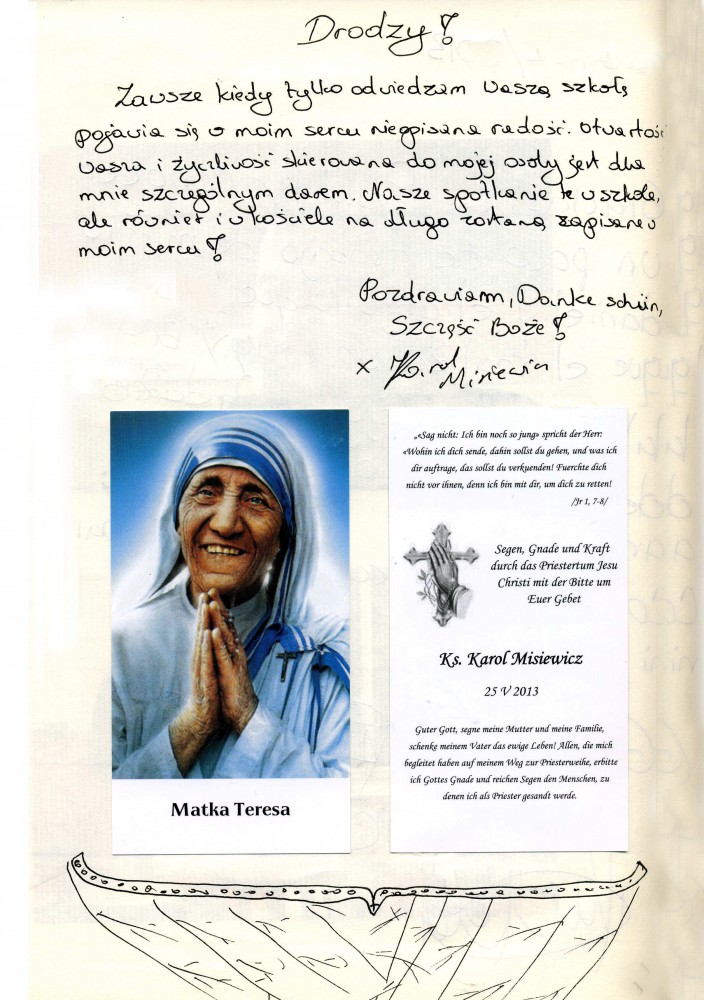 Drodzy!
Zawsze kiedy tylko odwiedzam waszą szkołę
pojawia się w moim sercu nieopisana radość. Otwartość
wasza i życzliwość skierowana do mojej osoby jest dla
mnie szczególnym darem. Nasze spotkanie te w szkole,
ale również i w kościele na długo zostaną zapisane w
moim sercu!
Pozdrawiam, Danke schön,
Szczęść Boże!
x Karol
Misiewicz
„«Sag nicht: Ich bin noch so jung» spricht der Herr:
«Wohin ich dich sende, dahin sollst du gehen, und was ich
dir auftrage, das sollst du verkuenden! Fuerchte dich
nicht vor ihnen, denn ich bin mit dir, um dich zu retten!
/Jr 1, 7-8/
Segen, Gnade und Kraft
durch das Priestertum Jesu
Christi mit der Bitte um
Euer Gebet
Ks. Karol Misiewicz
25 V 2013
Guter Gott, segne meine Mutter und meine Familie,
schenke meinem Vater das ewige Leben! Allen, die mich
begleitet haben auf meinem Weg zur Priesterweihe, erbitte
ich Gottes Gnade und reichen Segen den Menschen, zu
denen ich als Priester gesandt werde.
Matka Teresa